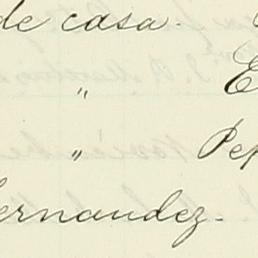 de casa.
"
" Pep
ernandez.